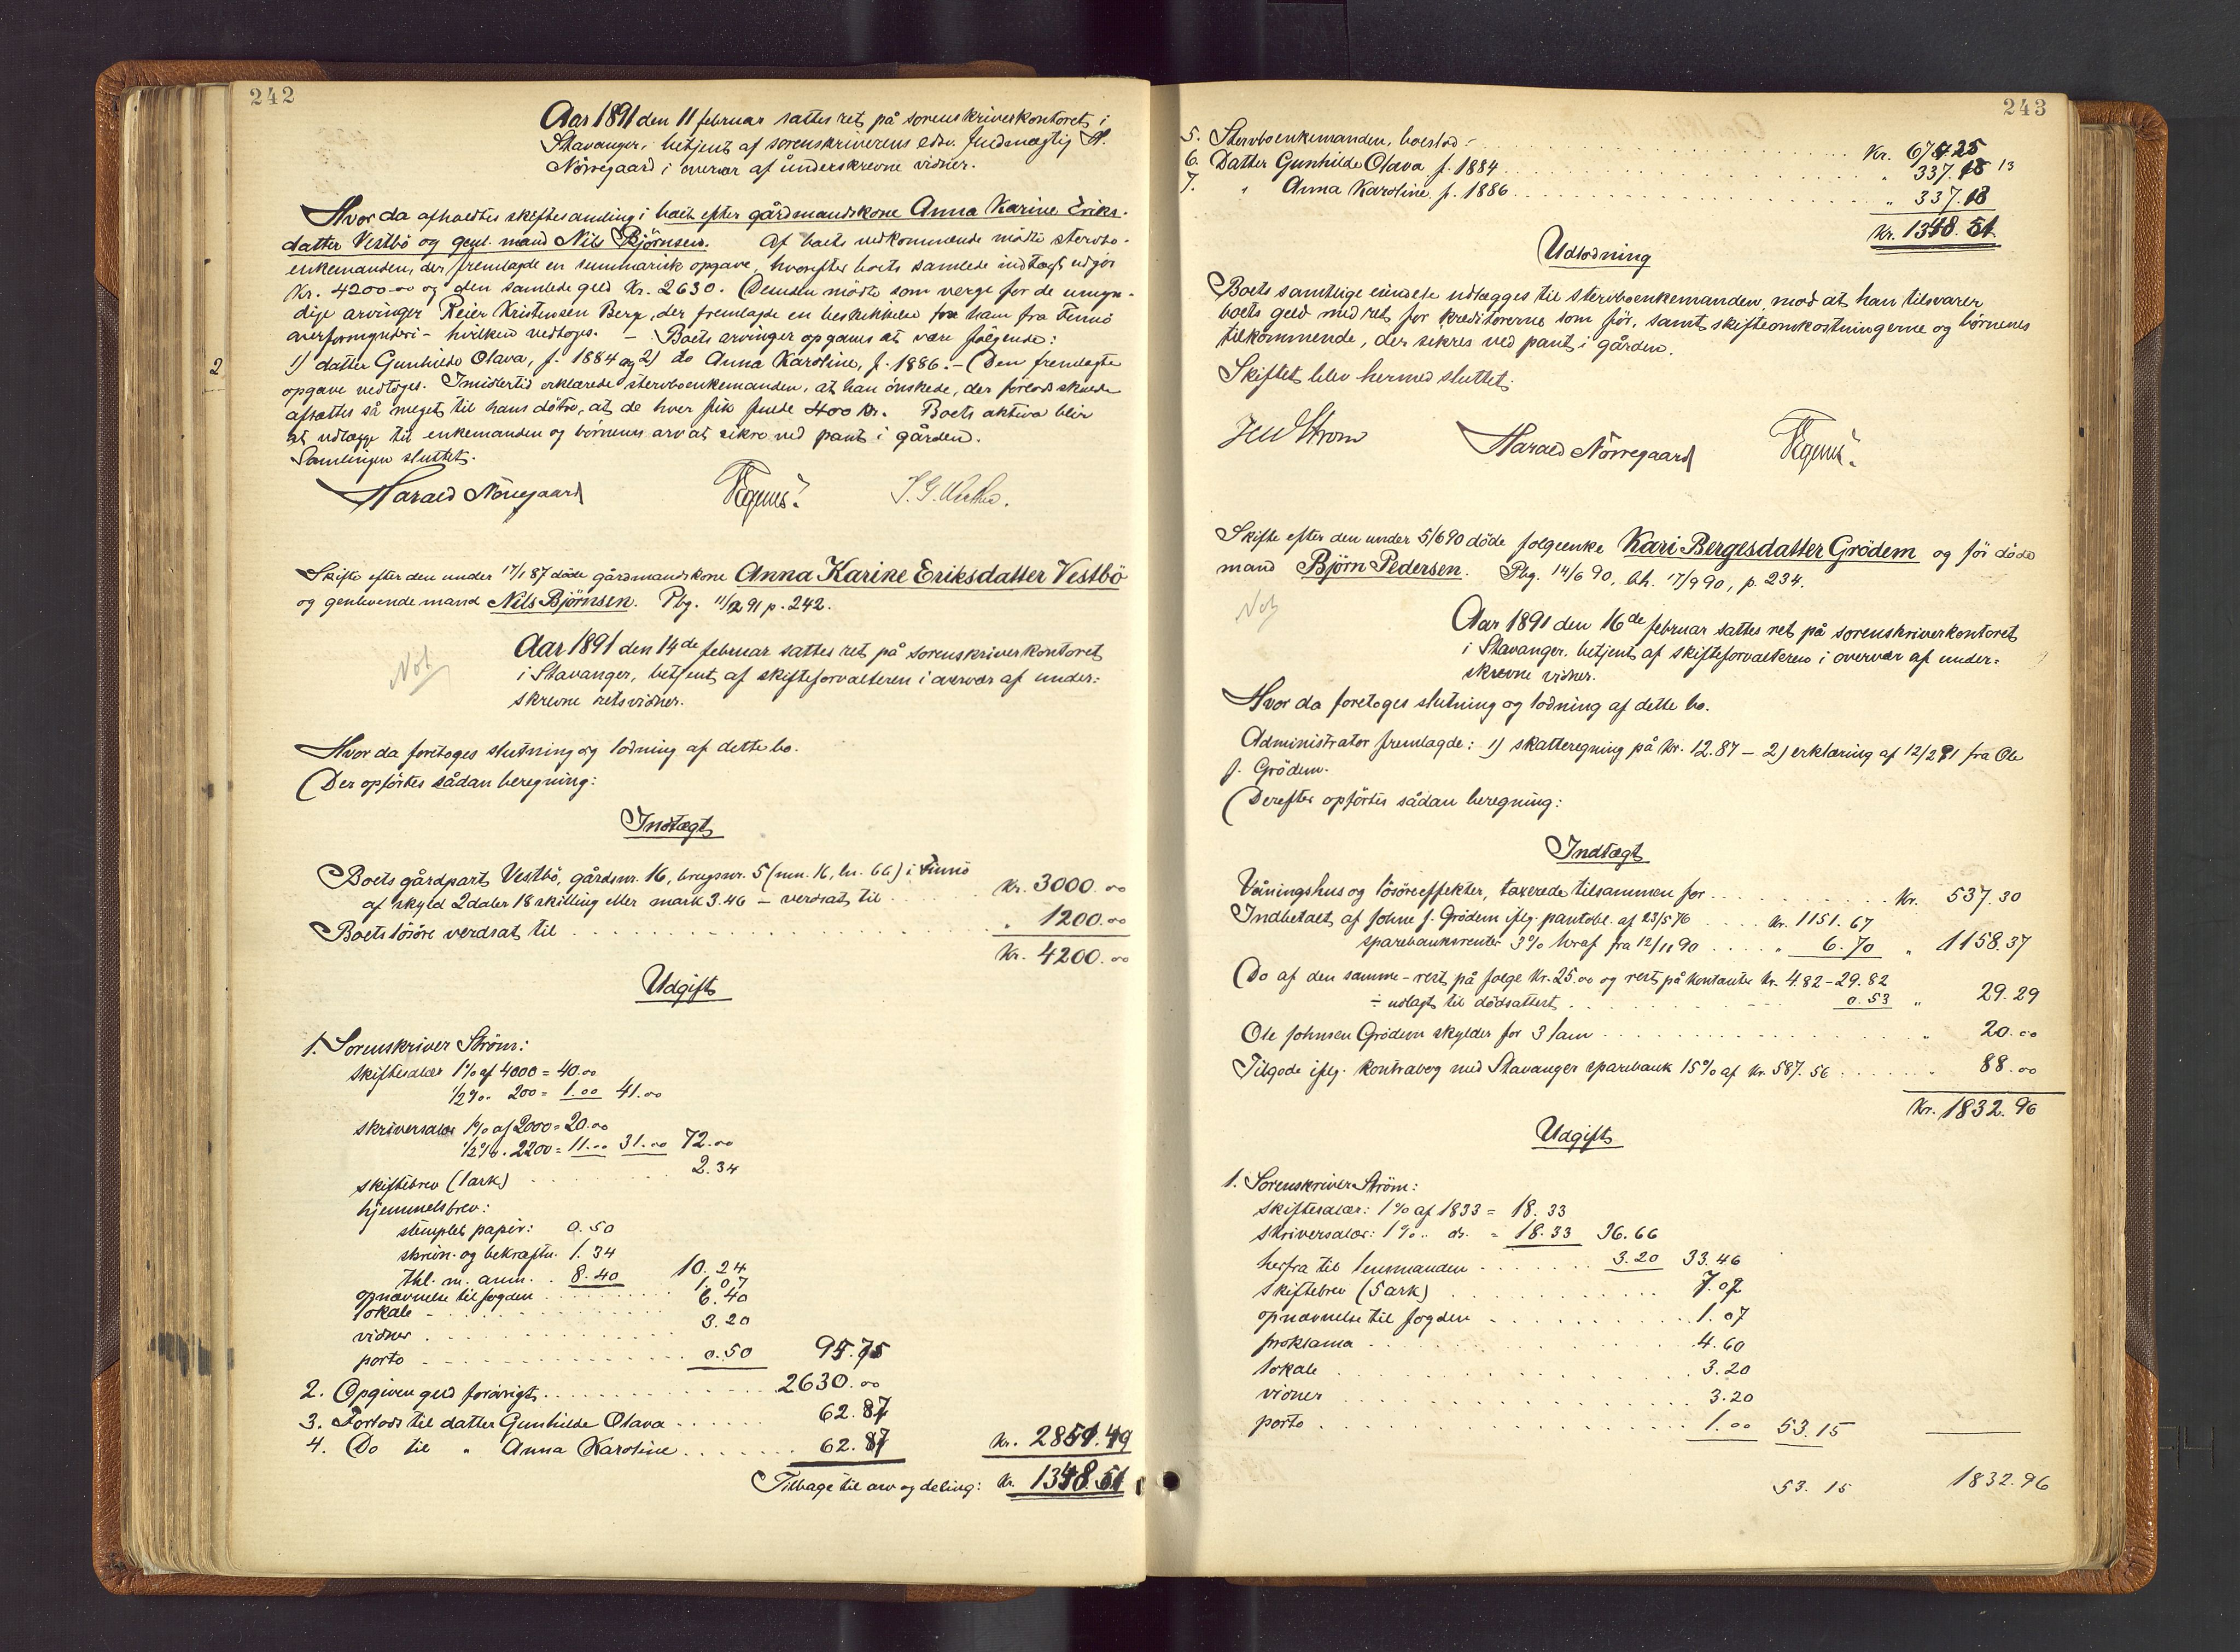 242
Aar 1891 den 11 februar sattes ret på sorenskriverkontoret i
Stavanger, betjent af sorenskriverens edsv. fuldmægtig H.
Nörregaard i overvær af underskrevne vidner.
Hvor da afholdtes skiftesamling i boet efter gårdmandskone Anna Karine Eriks-
datter Vestbö og genl. mand Nils Björnsen. Af boets vedkommende mödte stervbo-
enkemanden, der fremlagde en summarisk opgave, hvorefter boets samlede indtægt udgjör
Kr. 4200.00 og den samlede geld Kr. 2630. Desuden mödte som verge for de umyn-
dige arvinger Reier Kristensen Berg, der fremlagde en beskikkelse for ham fra Finnö
overformynderi - hvilken vedtoges. - Boets arvinger opgaves at være fölgende:
1) datter Gunhilde Olava, f. 1884 og 2) do Anna Karoline, f. 1886. - Den fremlagte
opgave vedtoges. Imidlertid erklærede stervboenkemanden, at han önskede, der forlods skulde
afsættes så meget til hans dötre, at de hver fik fulde 400 kr. Boets aktiva blir
at udlægge til enkemanden og börnenes arv at sikre ved pant i gården.
Samlingen sluttet.
Harald Nörregaard
2
Skifte efter den under 17/1 87 döde gårdmandskone Anna Karine Eriksdatter Vestbö
og genlevende mand Nils Björnsen. Pbg. 11/2 91 p. 242.
Not
Aar 1891 den 14de februar sattes ret på sorenskriverkontoret
i Stavanger, betjent af skifteforvalteren i overvær af under-
skrevne retsvidner.
Hvor da foretoges slutning og lodning af dette bo.
Der opförtes sådan beregning:
Indtægt
Boets gårdpart Vestbö, gårdsnr. 16, brugsnr. 5 (mn. 16, ln. 66) i Finnö
af skyld 2 daler 18 skilling eller mark 3.46 - verdsat til . . . Kr. 3000.00
Boets lösöre verdsat til . . . " 1200.00
Kr. 4200.00
Udgift
1. Sorenskriver Ström:
skiftesalær 1% af 4000 = 40.00
1/2% " 200 = 1.00 41.00
skriversalær 1% af 2000 = 20.00
1/2% " 2200 = 11.00 31.00 72.00
skiftebrev (1 ark) . . . 2.34
hjemmelsbrev:
stemplet papir: 0.50
skrivn. og bekræftn. 1.34
thl. m. anm. . 8.40 10.24
opnævnelse til fogden . . . 1.07
lokale . . . 6.40
vidner . . . 3.20
porto . . . 0.50 95.75
2. Opgiven geld forövrigt . . . 2630.00
3. Forlods til datter Gunhilde Olava . . . 62.87
4. Do til " Anna Karoline . . . 62.87 Kr. 2851.49
Tilbage til arv og deling: Kr. 1348.51
243
5. Stervboenkemanden, boeslod: . . . Kr. 674.25
6. Datter Gunhilde Olava f. 1884 . . . " 337.13 13
7. " Anna Karoline f. 1886 . . . " 337.13
Kr. 1348.51
Udlodning
Boets samtlige eiendele udlægges til stervboenkemanden mod at han tilsvarer
boets geld med ret for kreditorerne som för, samt skifteomkostningerne og börnenes
tilkommende, der sikres ved pant i gården.
Skiftet blev hermed sluttet.
Ström Harald Nörregaard
Skifte efter den under 5/6 90 döde folgeenke Kari Bergesdatter Grödem og för döde
mand Björn Pedersen. Pbg. 14/6 90, bh. 17/9 90, p. 234.
Not
Aar 1891 den 16de februar sattes ret på sorenskriverkontoret
i Stavanger. betjent af skifteforvalteren i overvær af under-
skrevne vidner.
Hvor da foretoges slutning og lodning af dette bo.
Administrator fremlagde: 1) skatteregning på Kr. 12.87 - 2) erklæring af 12/2 91 fra Ole
J. Grödem.
Derefter opförtes sådan beregning:
Indtægt
Våningshus og lösöreeffekter, taxerede tilsammen for . . . Kr. 537.30
Indbetalt af Johne J. Grödem iflg. pantobl. af 23/5 76 . . . Kr. 1151.67
sparebankrenter 3% heraf fra 12/11 90 . . . " 6.70 " 1158.37
Do af den samme - rest på folge Kr. 25.00 og rest på kontanter Kr. 4.82 - 29.82
÷ udlagt til dödsattest . . . 0.53 " 29.29
Ole Johnsen Grödem skylder for 3 lam . . . " 20.00
Tilgode iflg. kontrabog med Stavanger sparebank 15% af Kr. 587.56 . . . " 88.00
Kr. 1832.96
Udgift
1. Sorenskriver Ström:
skiftesalær: 1% af 1833 = 18.33
skriversalær: 1% " do. = 18.33 36.66
herfra til lensmanden . . . 3.20 33.46
skiftebrev (5 ark) . . . 7.02
opnævnelse til fogden . . . 1.07
proklama . . . 4.60
lokale . . . 3.20
vidner . . . 3.20
porto . . . 1.00 53.15
53.15 1832.96